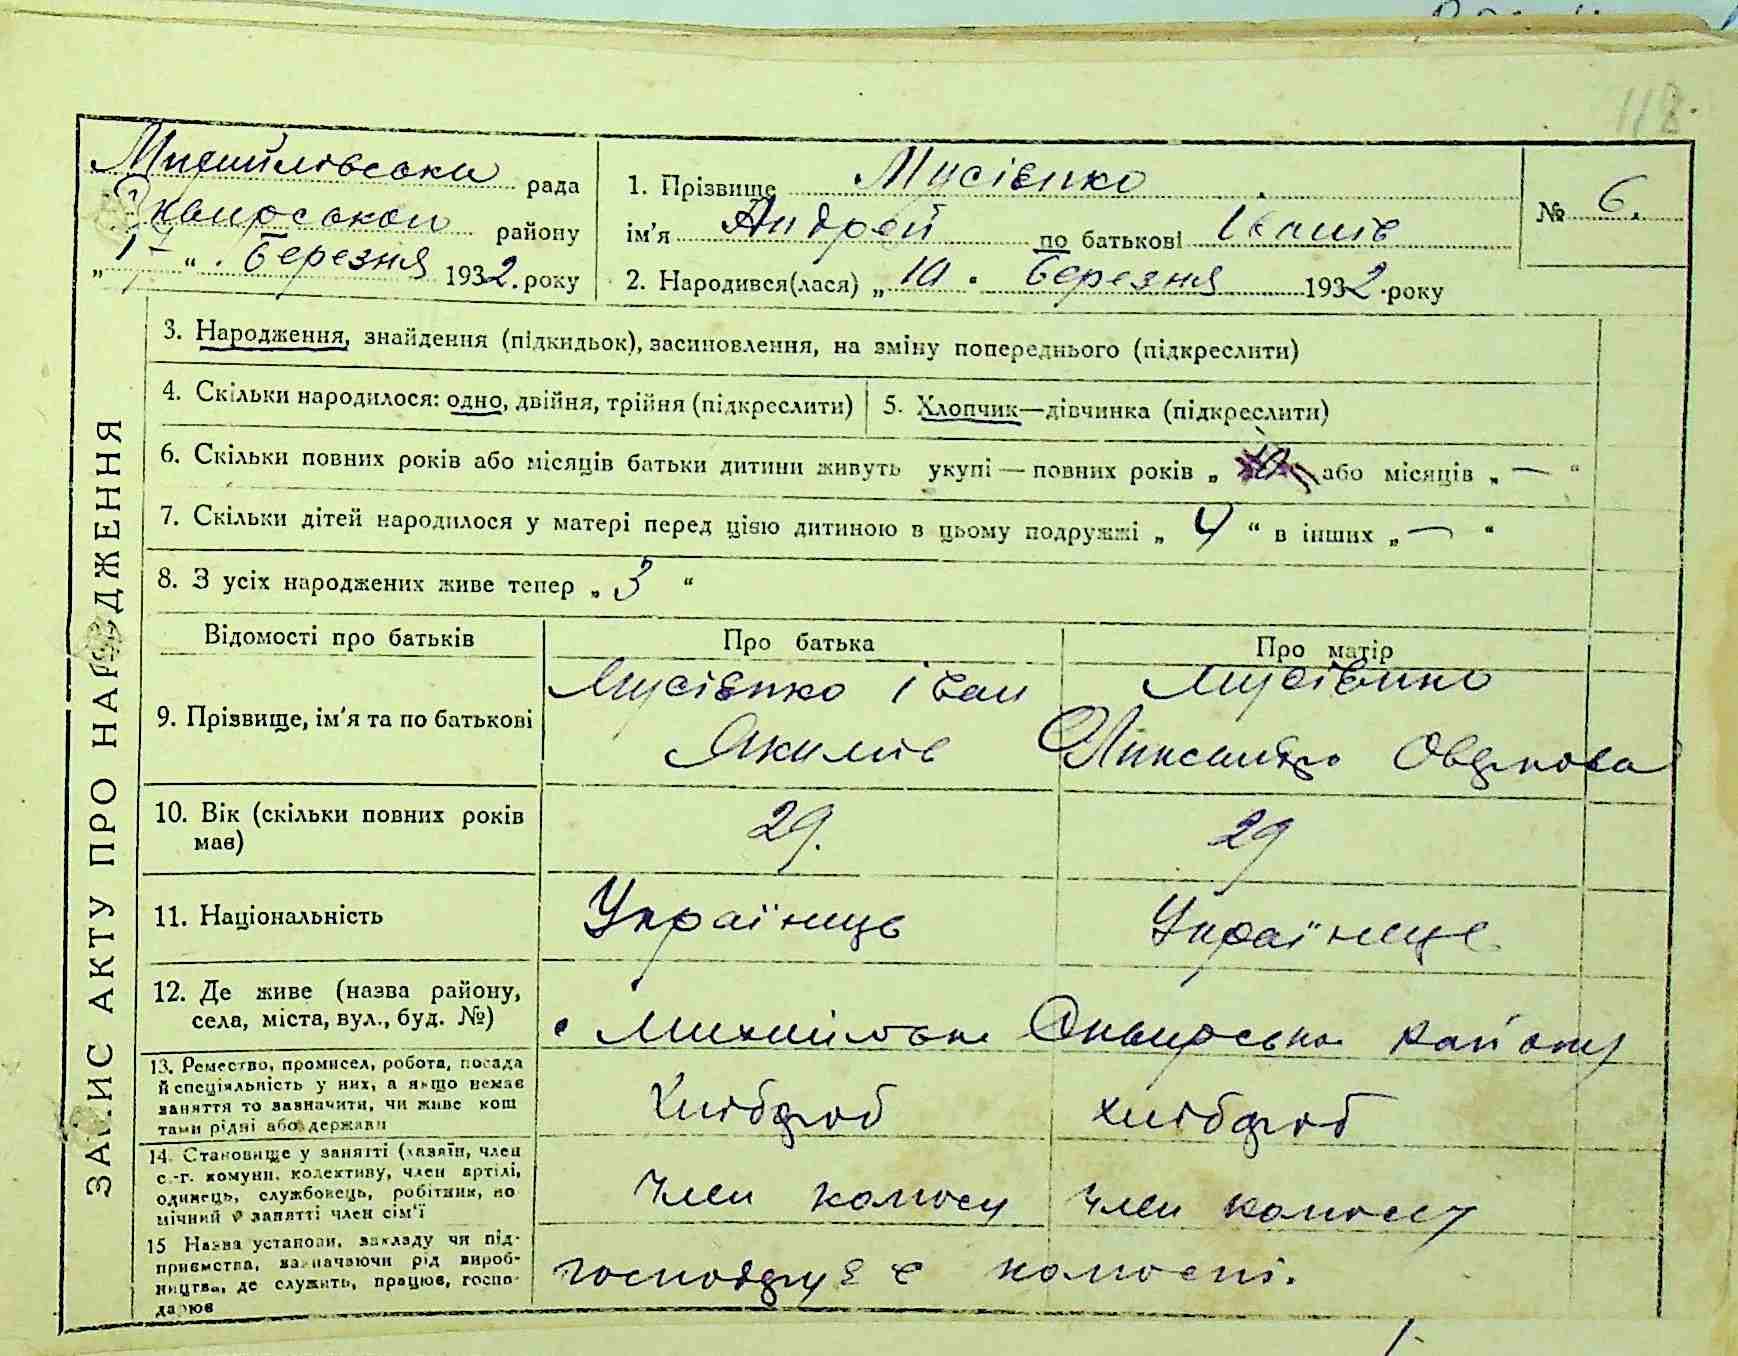 118.
Михайлівська рада
Сквирського району
„17“ березня 1932 року
1. Прізвище Мусієнко
ім'я Андрей по батькові Іванів
№ 6.
2. Народився(лася) „10. березня 1932 року
ЗАПИС АКТУ ПРО НАРОДЖЕННЯ
3. Народження, знайдення (підкидьок), засиновлення, на зміну попереднього (підкреслити)
4. Скільки народилося: одно, двійня, трійня (підкреслити)
5. Хлопчик—дівчинка (підкреслити)
6. Скільки повних років або місяців батьки дитини живуть укупі — повних років „10 або місяців „—“
7. Скільки дітей народилося у матері перед цією дитиною в цьому подружжі „4“ в інших „—“
8. З усіх народжених живе тепер „3“
Відомості про батьків Про батька Про матір
9. Прізвище, ім'я та по батькові
Мусієнко Іван
Якимів
Мусієнко
Олександра
10. Вік (скільки повних років має) 29. 29
11. Національність Українець Українець
12. Де живе (назва району,
села, міста, вул., буд. №)
с Михайлівка Сквирська району
13. Ремество, промисел, робота, посада
й спеціяльність у них, а якщо немає
заняття то зазначити, чи живе кош
тами рідні або держави
Хлібороб хлібороб
14. Становище у занятті (хазяїн, член
с.-г. комуни, колективу, член артілі,
одинець, службовець, робітник, по
мічний в занятті член сім'ї
Член колгоспу Член колгоспу
15 Назва установи, закладу чи під-
приємства, зазначаючи рід вироб-
ництва, де служить, працює, госпо-
дарює
господарує в колгоспі.